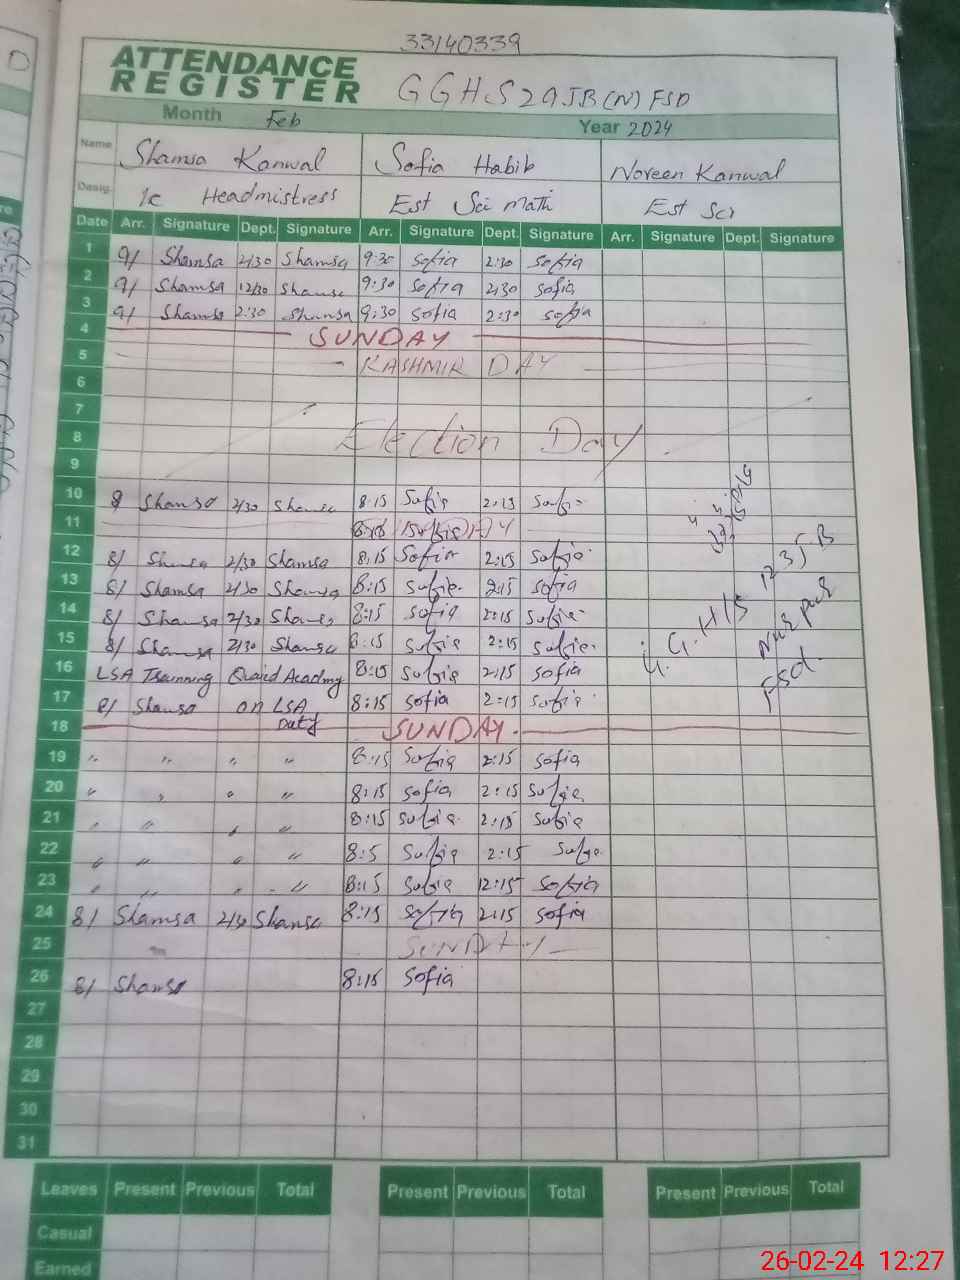 33140339
ATTENDANCE
REGISTER
GGHS 29JB(N) FSD
Month Feb Year 2024
Name Shamsa Kanwal Sofia Habib Noreen Kanwal
Desig. I/c Headmistress Est Sci math Est Sci
Date Arr. Signature Dept. Signature Arr. Signature Dept. Signature Arr. Signature Dept. Signature
1 9/ Shamsa 2/30 Shamsa 9:30 Sofia 2:30 Sofia
2 9/ Shamsa 12/30 Shamsa 9:30 Sofia 2:30 Sofia
3 9/ Shamsa 2:30 Shamsa 9:30 Sofia 2:30 Sofia
4 SUNDAY
5 KASHMIR DAY
6
7
8 Election Day
9
10 8 Shamsa 2/30 Shamsa 8:15 Sofia 2:15 Sofia
11
12 8/ Shamsa 2/30 Shamsa 8:15 Sofia 2:15 Sofia
13 8/ Shamsa 2/30 Shamsa 8:15 Sofia 2:15 Sofia
14 8/ Shamsa 2/30 Shamsa 8:15 Sofia 2:15 Sofia
15 8/ Shamsa 2/30 Shamsa 8:15 Sofia 2:15 Sofia
16 LSA Training Quaid Academy 8:15 Sofia 2:15 Sofia
17 8/ Shamsa on LSA Duty 8:15 Sofia 2:15 Sofia
18 SUNDAY
19 " " " " 8:15 Sofia 2:15 Sofia
20 " " " " 8:15 Sofia 2:15 Sofia
21 " " " " 8:15 Sofia 2:15 Sofia
22 " " " " 8:5 Sofia 2:15 Sofia
23 " " " " 8:15 Sofia 12:15 Sofia
24 8/ Shamsa 2/30 Shamsa 8:15 Sofia 2:15 Sofia
25 SUNDAY
26 8/ Shamsa 8:15 Sofia
27
28
29
30
31
G.G.H/S 123 J-B
Fsd.
Leaves Present Previous Total Present Previous Total Present Previous Total
Casual
Earned
26-02-24 12:27